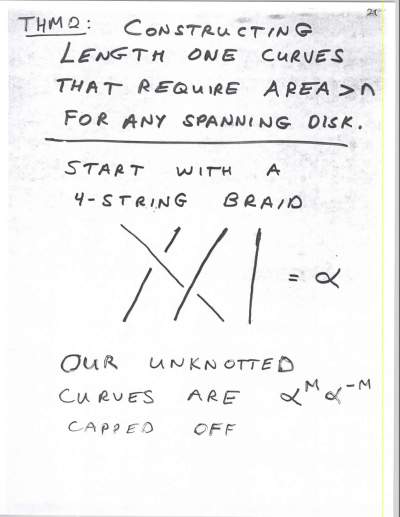 THM 2: CONSTRUCTING
LENGTH ONE CURVES
THAT REQUIRE AREA > n
FOR ANY SPANNING DISK.
START WITH A
4-STRING BRAID
= α
OUR UNKNOTTED
CURVES ARE α^M α^-M
CAPPED OFF